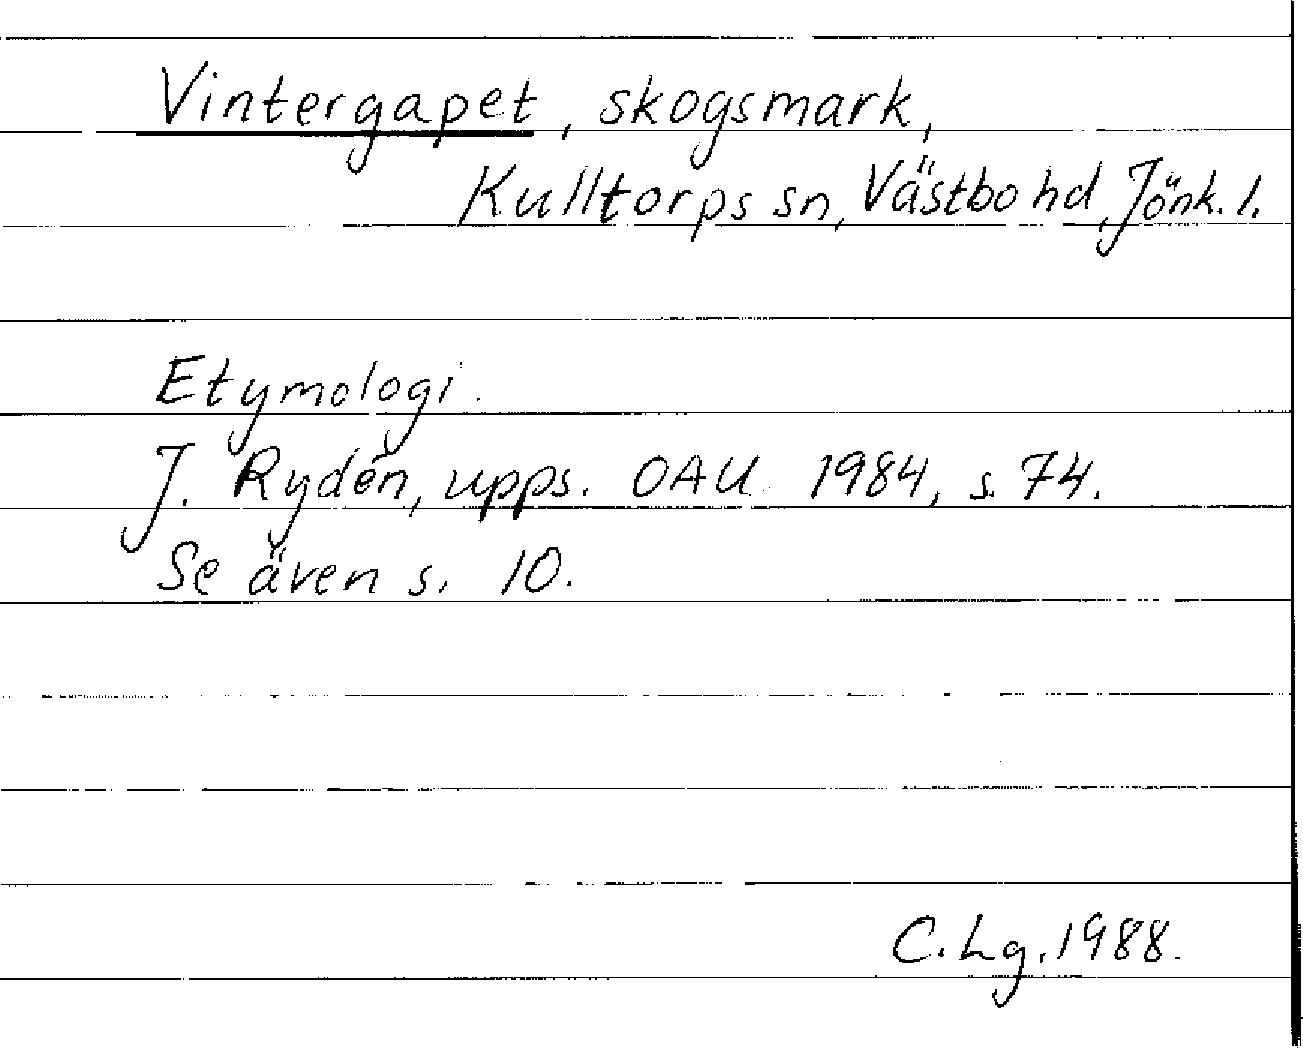 Vintergapet, skogsmark,
Kulltorps sn, Västbo hd, Jönk. l.
Etymologi.
J. Rydén, upps. OAU 1984, s. 74.
Se även s. 10.
C. Lg. 1988.